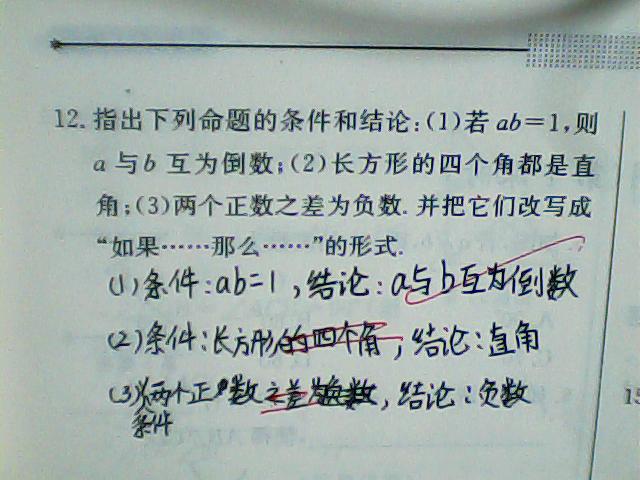 12.指出下列命题的条件和结论:(1)若ab=1,则
a与b互为倒数;(2)长方形的四个角都是直
角;(3)两个正数之差为负数.并把它们改写成
“如果……那么……”的形式.
(1)条件:ab=1,结论:a与b互为倒数
(2)条件:长方形的四个角,结论:直角
(3)两个正数之差为负数,结论:负数
条件
15